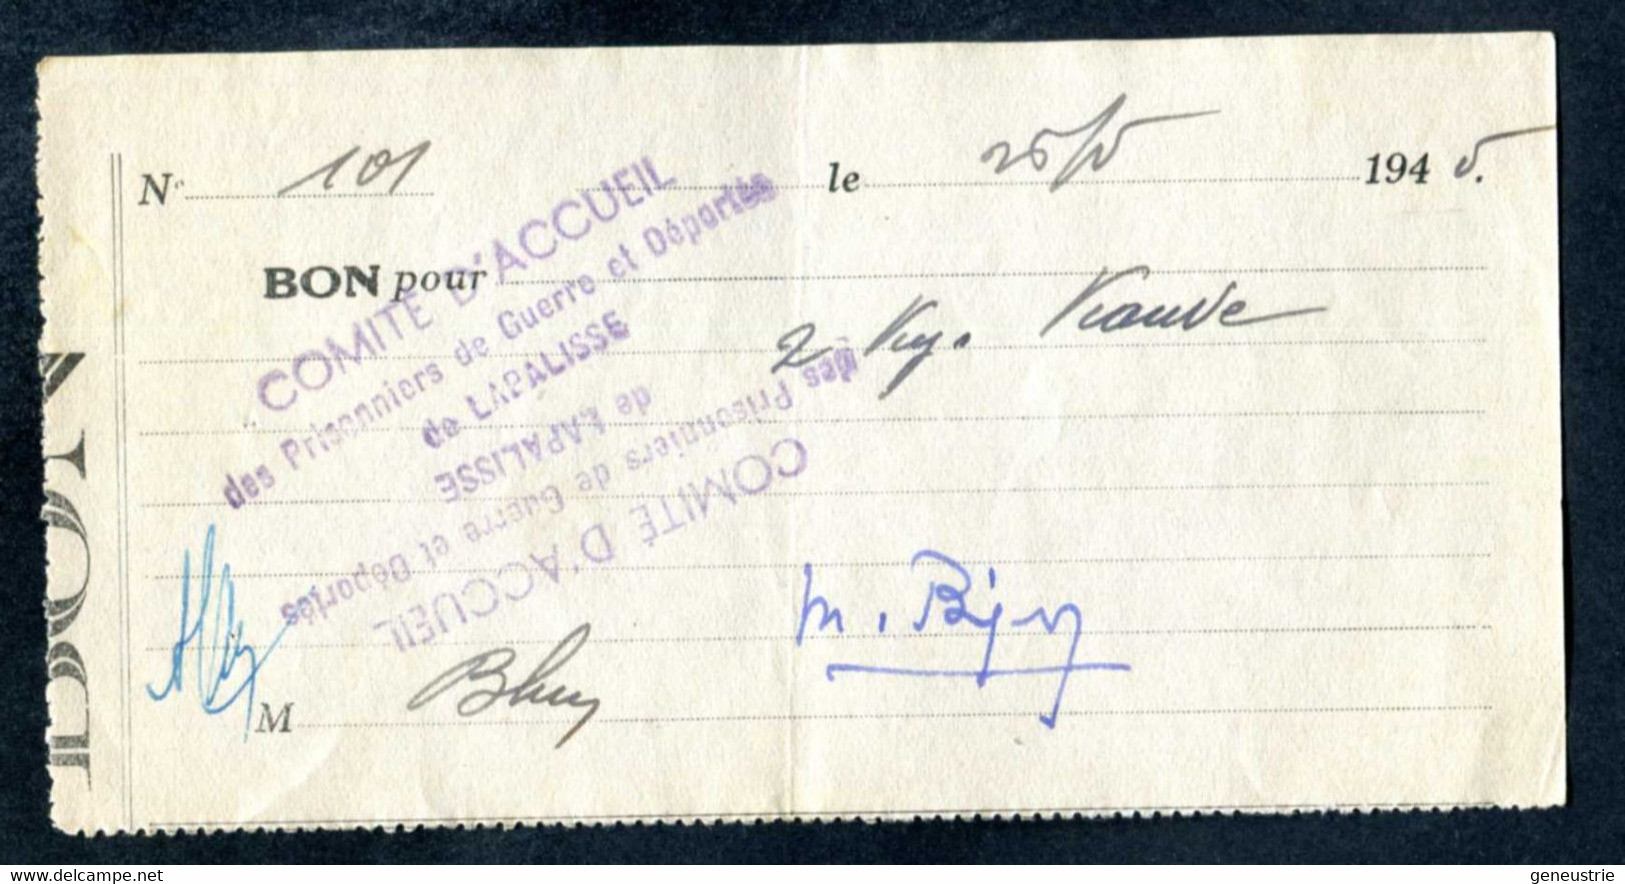 N° 101 le 25/5 1945.
BON pour
COMITÉ D'ACCUEIL
des Prisonniers de Guerre et Déportés
de LAPALISSE
2 Kg. Viande
COMITÉ D'ACCUEIL
des Prisonniers de Guerre et Déportés
de LAPALISSE
BON
M
delcampe.net
geneustrie